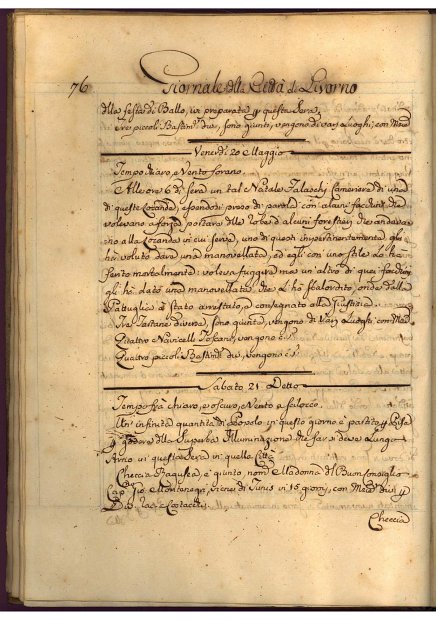 76 Giornale della Città di Livorno
della festa di Ballo, ivi preparata p questa Sera.
Tre piccoli Bastim.ti div., sono giunti, vengono di varj Luoghi, con Merci
Venerdì 20 Maggio
Tempo chiaro, e Vento forano.
All'ore 6 di sera un tal Natale Falaschi Cameriere di una
di queste Locande, essendosi preso di parole con alcuni facchini che
volevano a forza portare della roba d'alcuni forestieri che andava
no alla Locanda in cui serve, uno di questi impertinentemente gli
hà voluto dare una manovellata, ed egli con uno stile lo hà
ferito mortalmente; voleva fuggire ma un altro di quei facchini
gli hà dato una manovellata che l'hà sbalordito, onde dalla
Pattuglia è stato arrestato, e consegnato alla Giustizia.
Tre Tartane diverse, sono giunte, vengono di Varj Luoghi, con Merci
Quattro Navicelli Toscani, vengono
Quattro piccoli Bastim.ti div., vengono
Sabato 21 Detto
Tempo frà chiaro, e oscuro, e Vento a scilocco.
Un infinita quantità di popolo in questo giorno è partito p Pisa
p godere della superba Illuminazione che far si deve Lungo
Arno in questa Sera in quella Città
Checcia Ragusea è giunta nom.a Madonna del Buon Consiglio
Cap. Gio. Montenegri, viene di Tunis in 15 giorni, con Merci div. p
Checcia